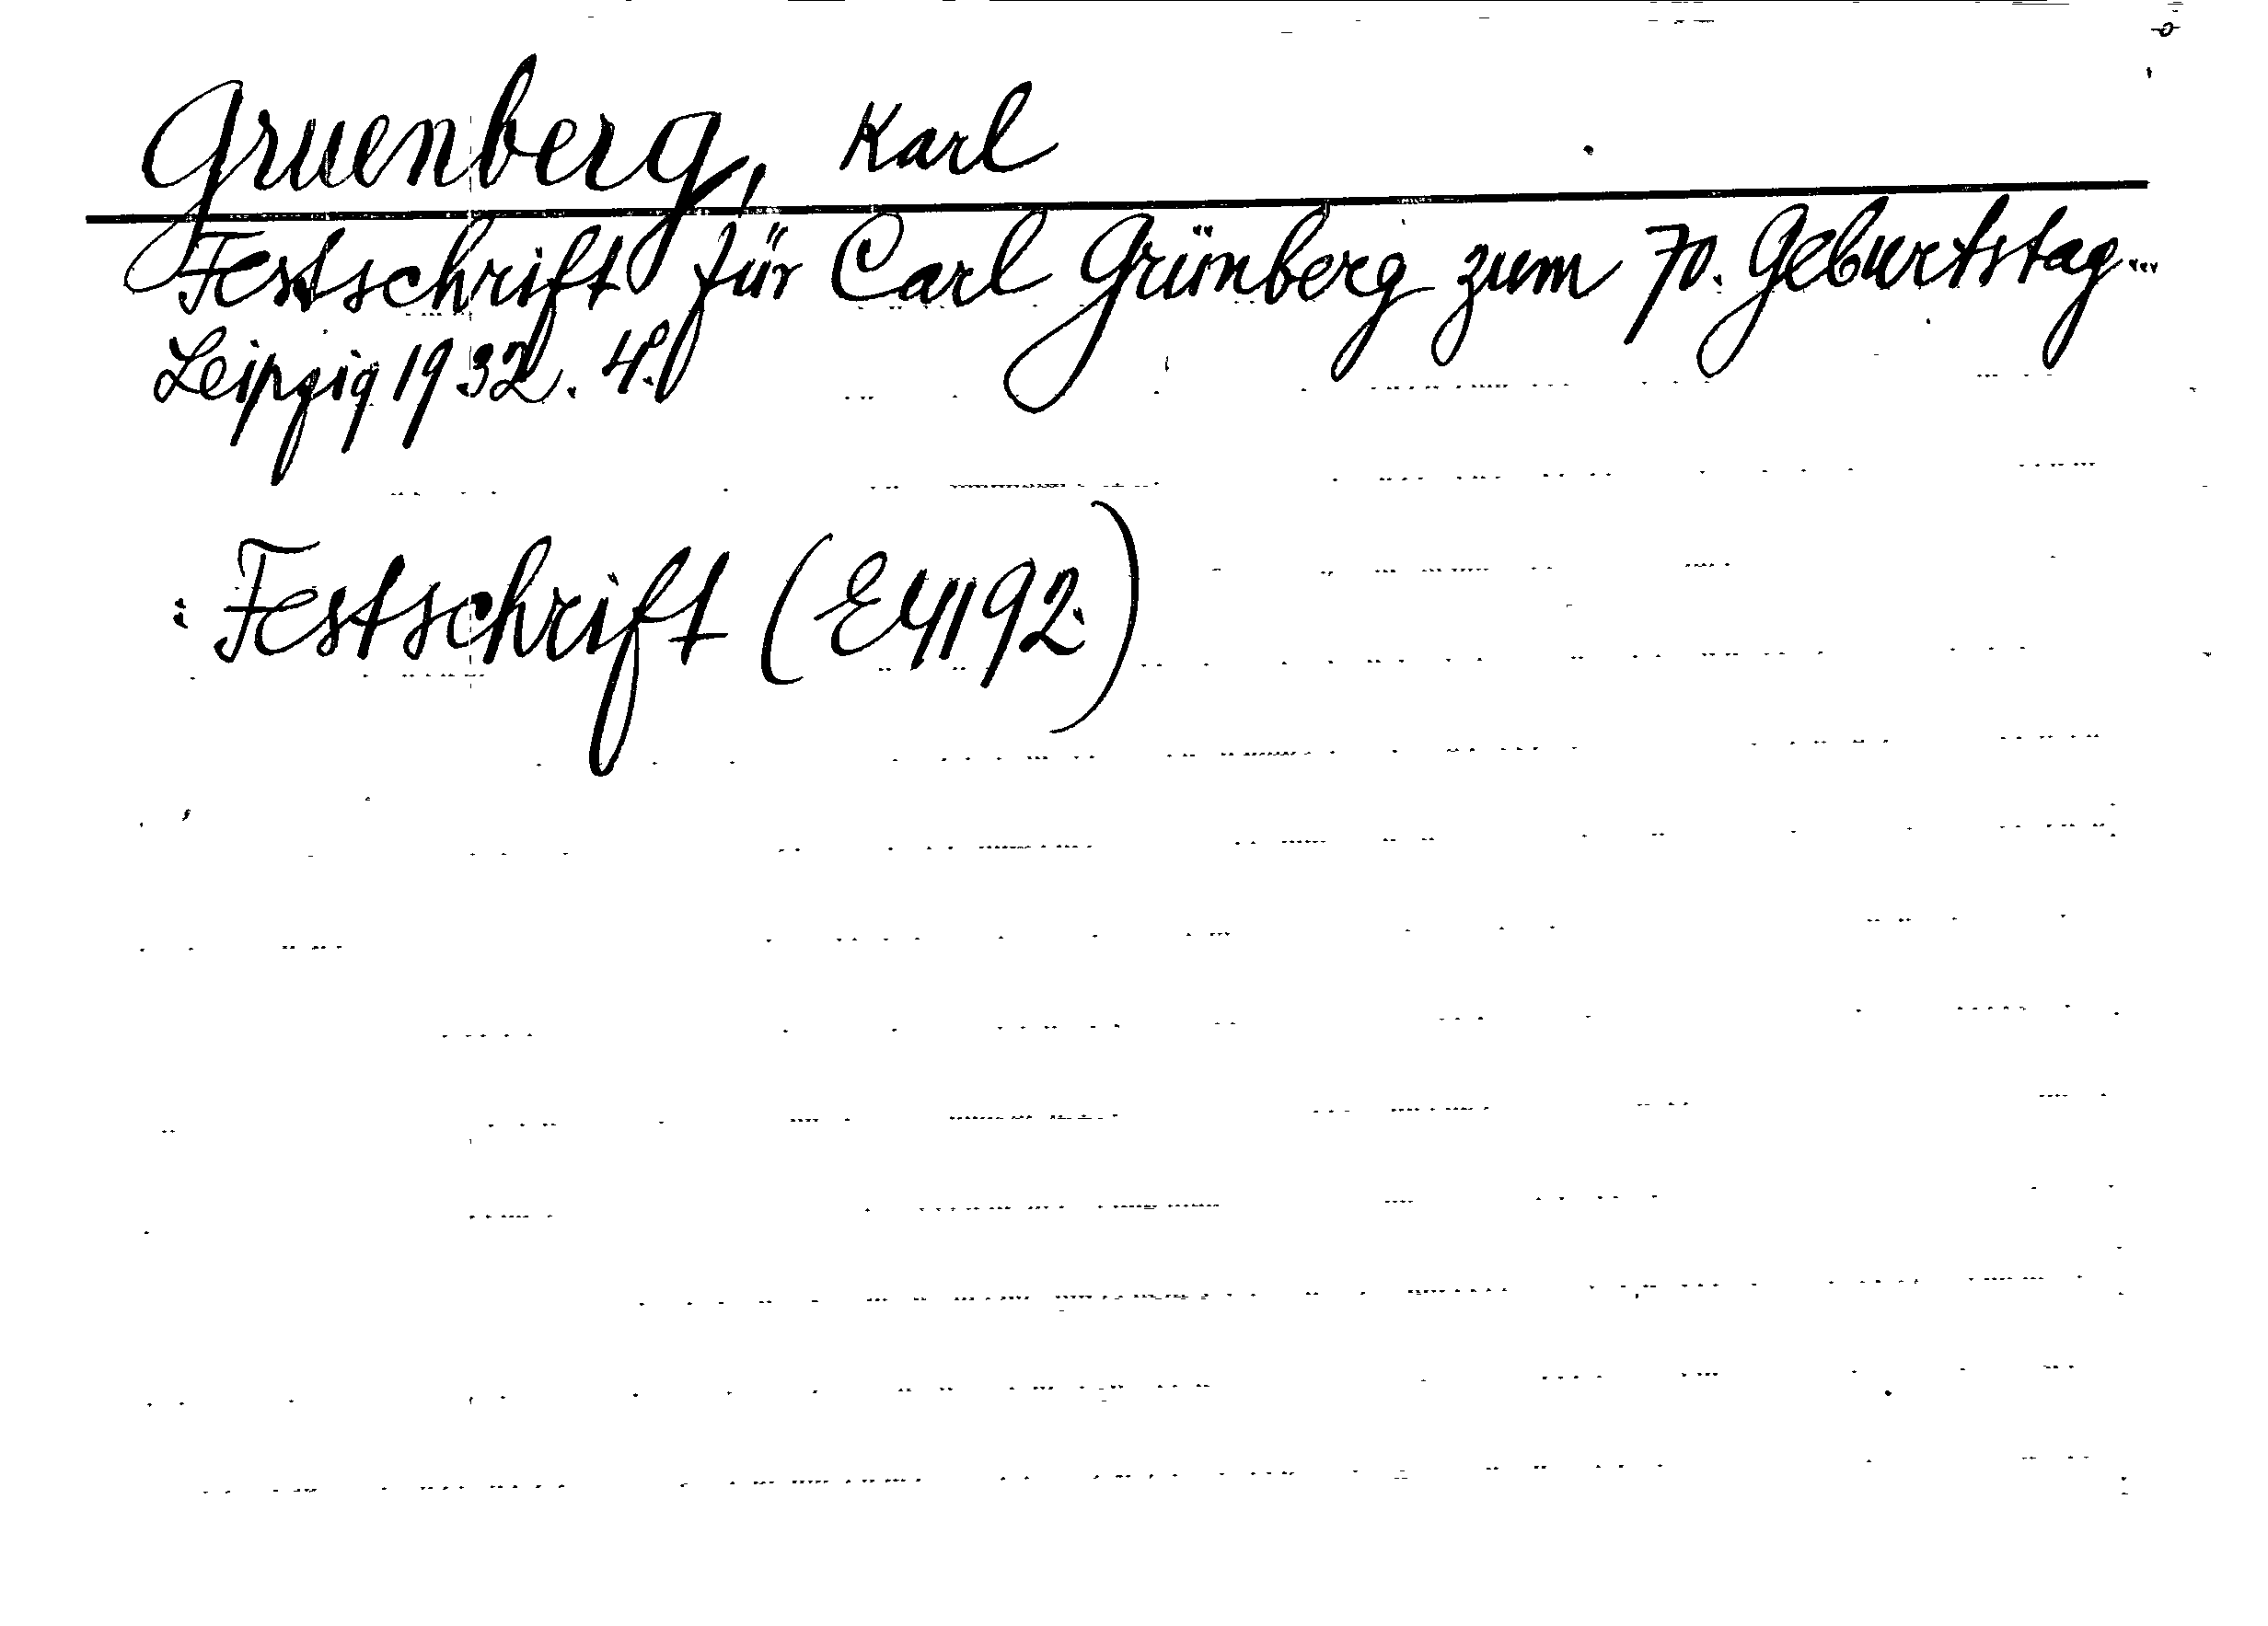 Gruenberg, Karl
Festschrift für Carl Grünberg zum 70. Geburtstag...
Leipzig 1932. 4°.
: Festschrift (E4192)